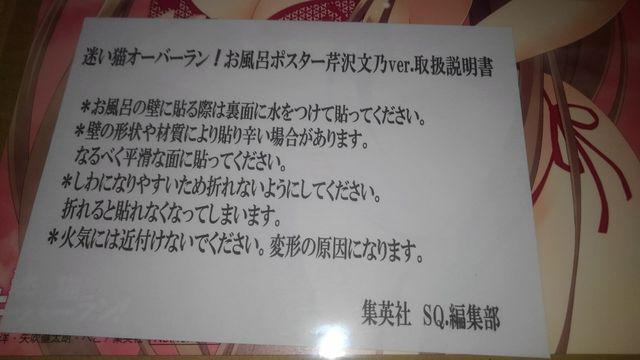 迷い猫オーバーラン!お風呂ポスター芹沢文乃ver.取扱説明書
*お風呂の壁に貼る際は裏面に水をつけて貼ってください。
*壁の形状や材質により貼り辛い場合があります。
なるべく平滑な面に貼ってください。
*しわになりやすいため折れないようにしてください。
折れると貼れなくなってしまいます。
*火気には近付けないでください。変形の原因になります。
集英社 SQ.編集部